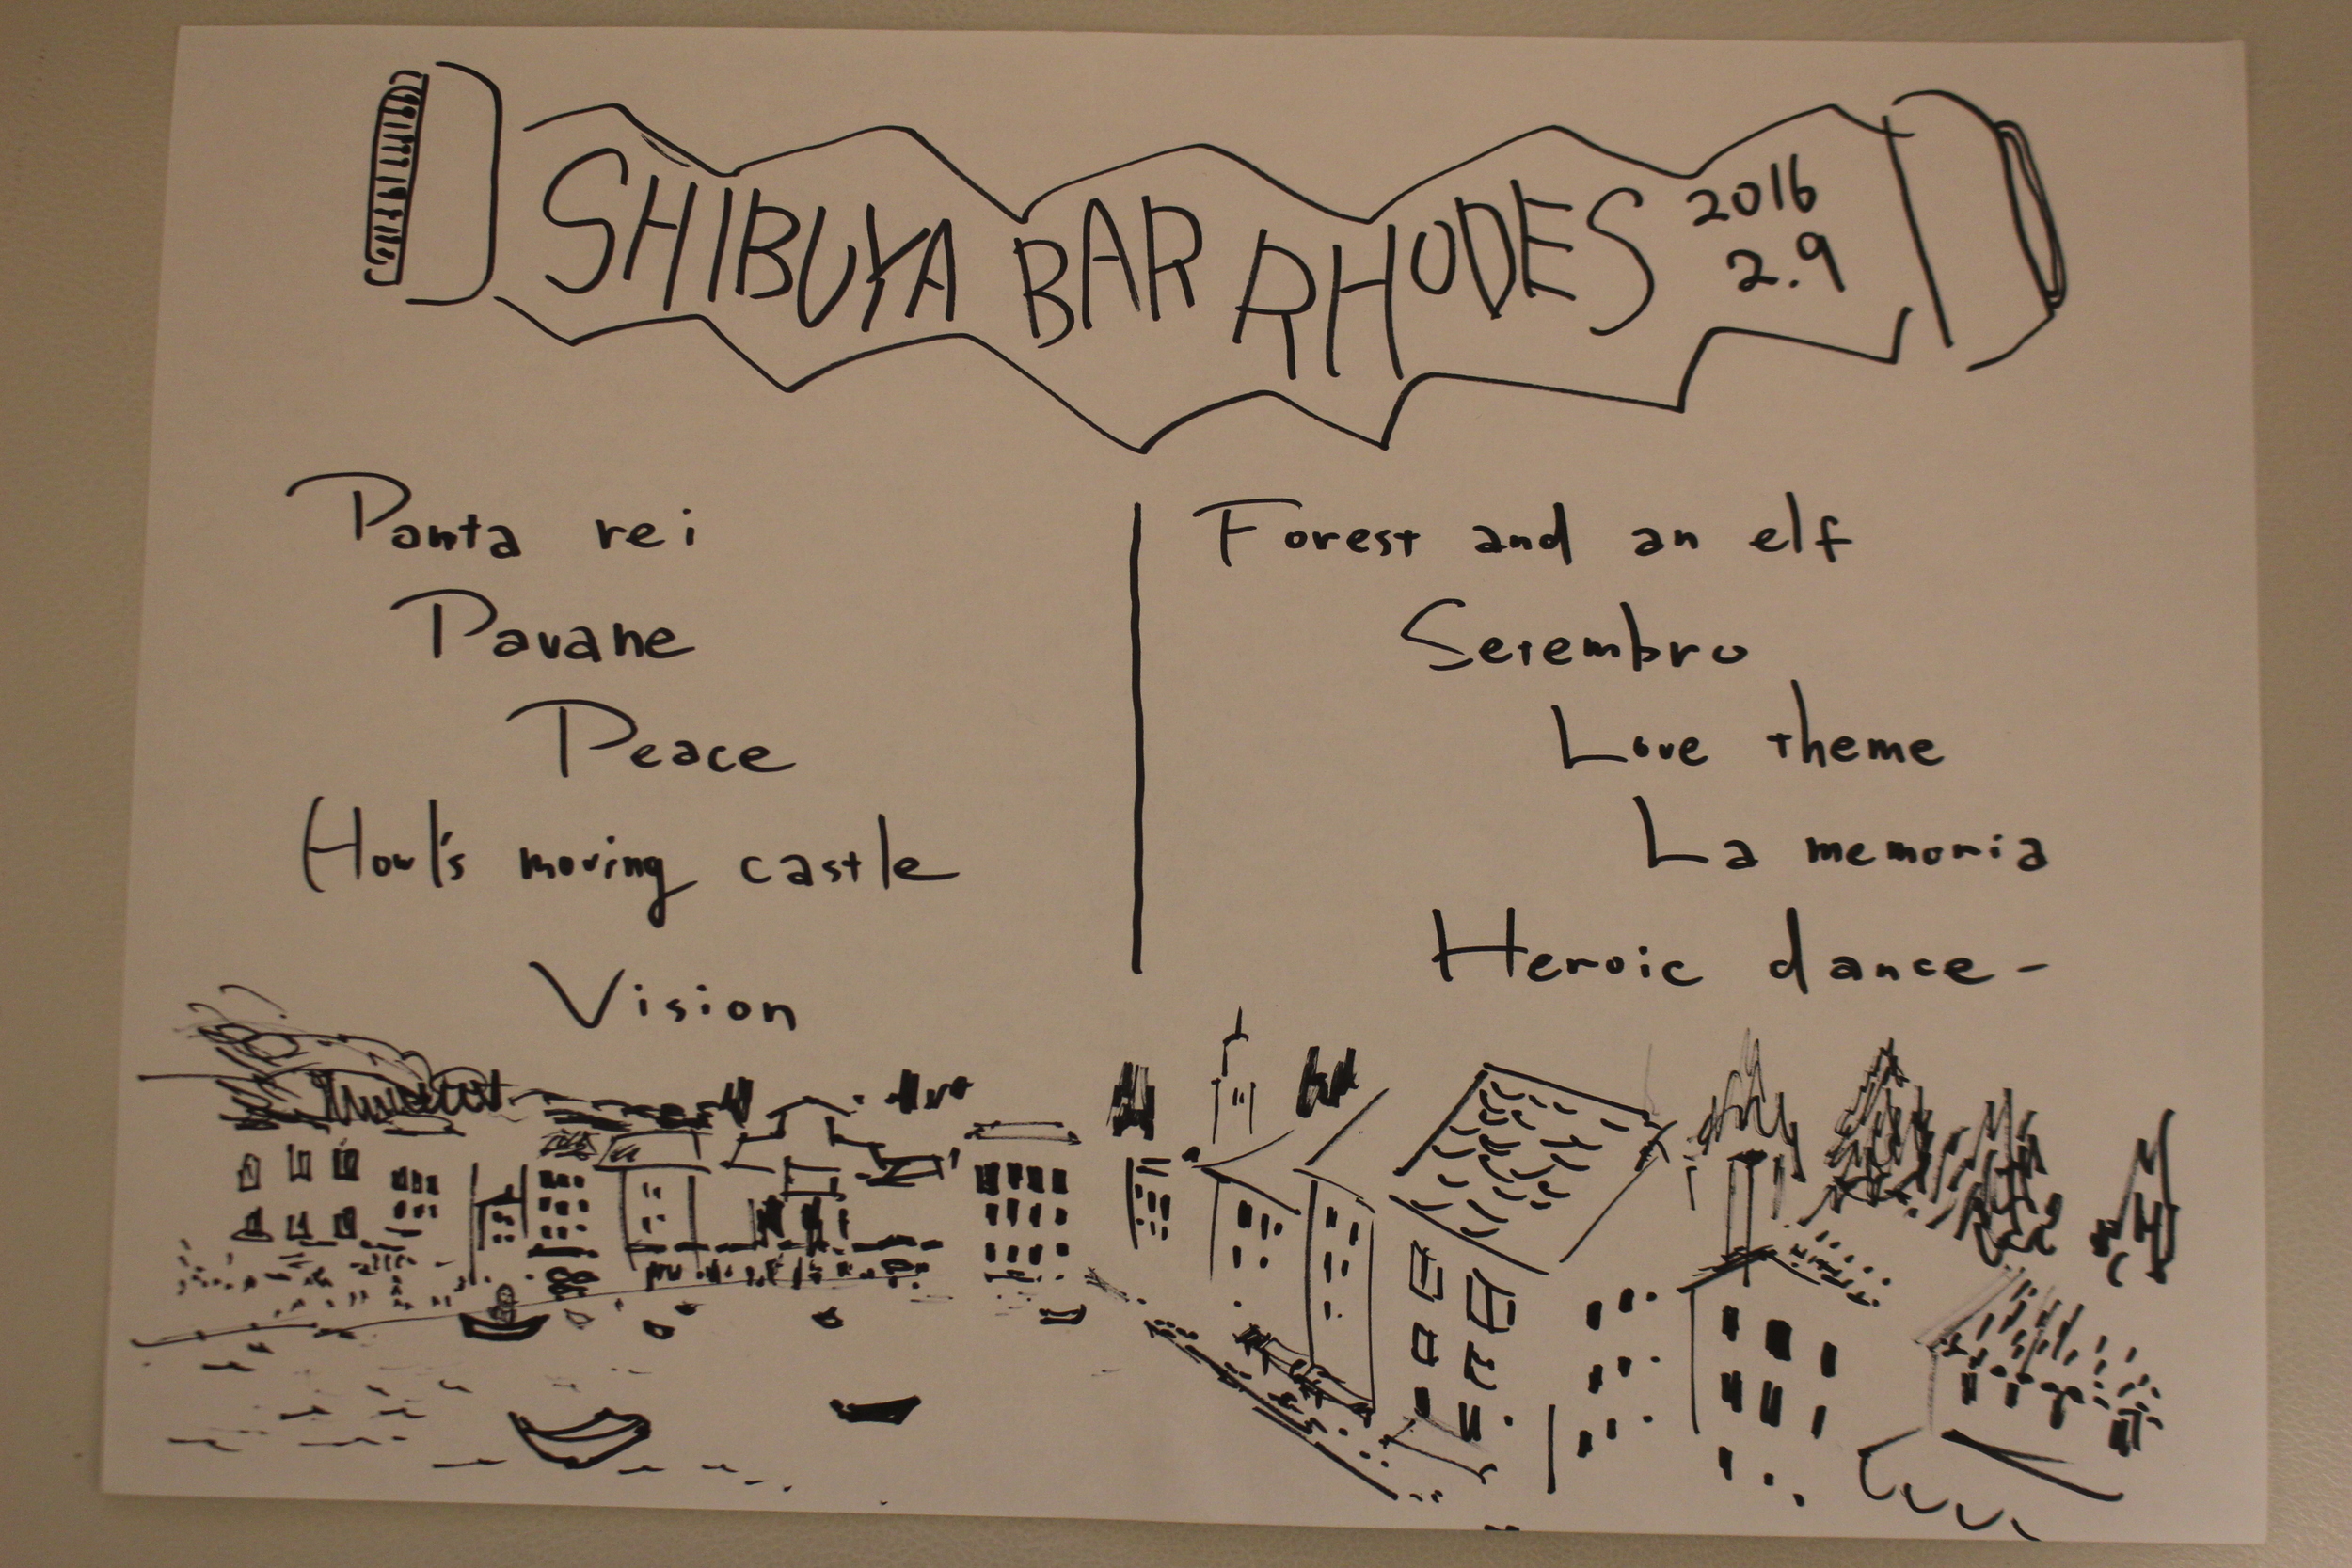 SHIBUYA BAR RHODES
2016
2.9
Panta rei
Pavane
Peace
Howl's moving castle
Vision
Forest and an elf
Setembro
Love theme
La memoria
Heroic dance-